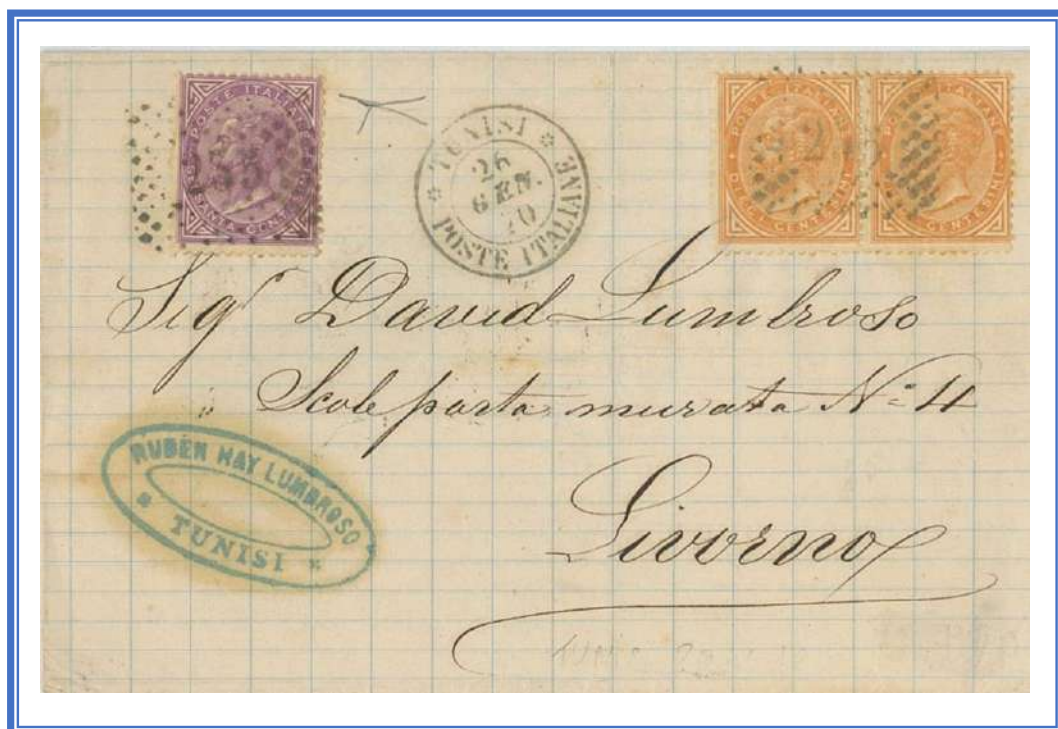 POSTE ITALIANE
SESSANTA CENT
TUNISI
26
GEN.
70
POSTE ITALIANE
POSTE ITALIANE
DIECI CENTESIMI
POSTE ITALIANE
DIECI CENTESIMI
Sigr David Lumbroso
Scole porta murata No 4
Livorno
RUBEN HAY LUMBROSO
TUNISI